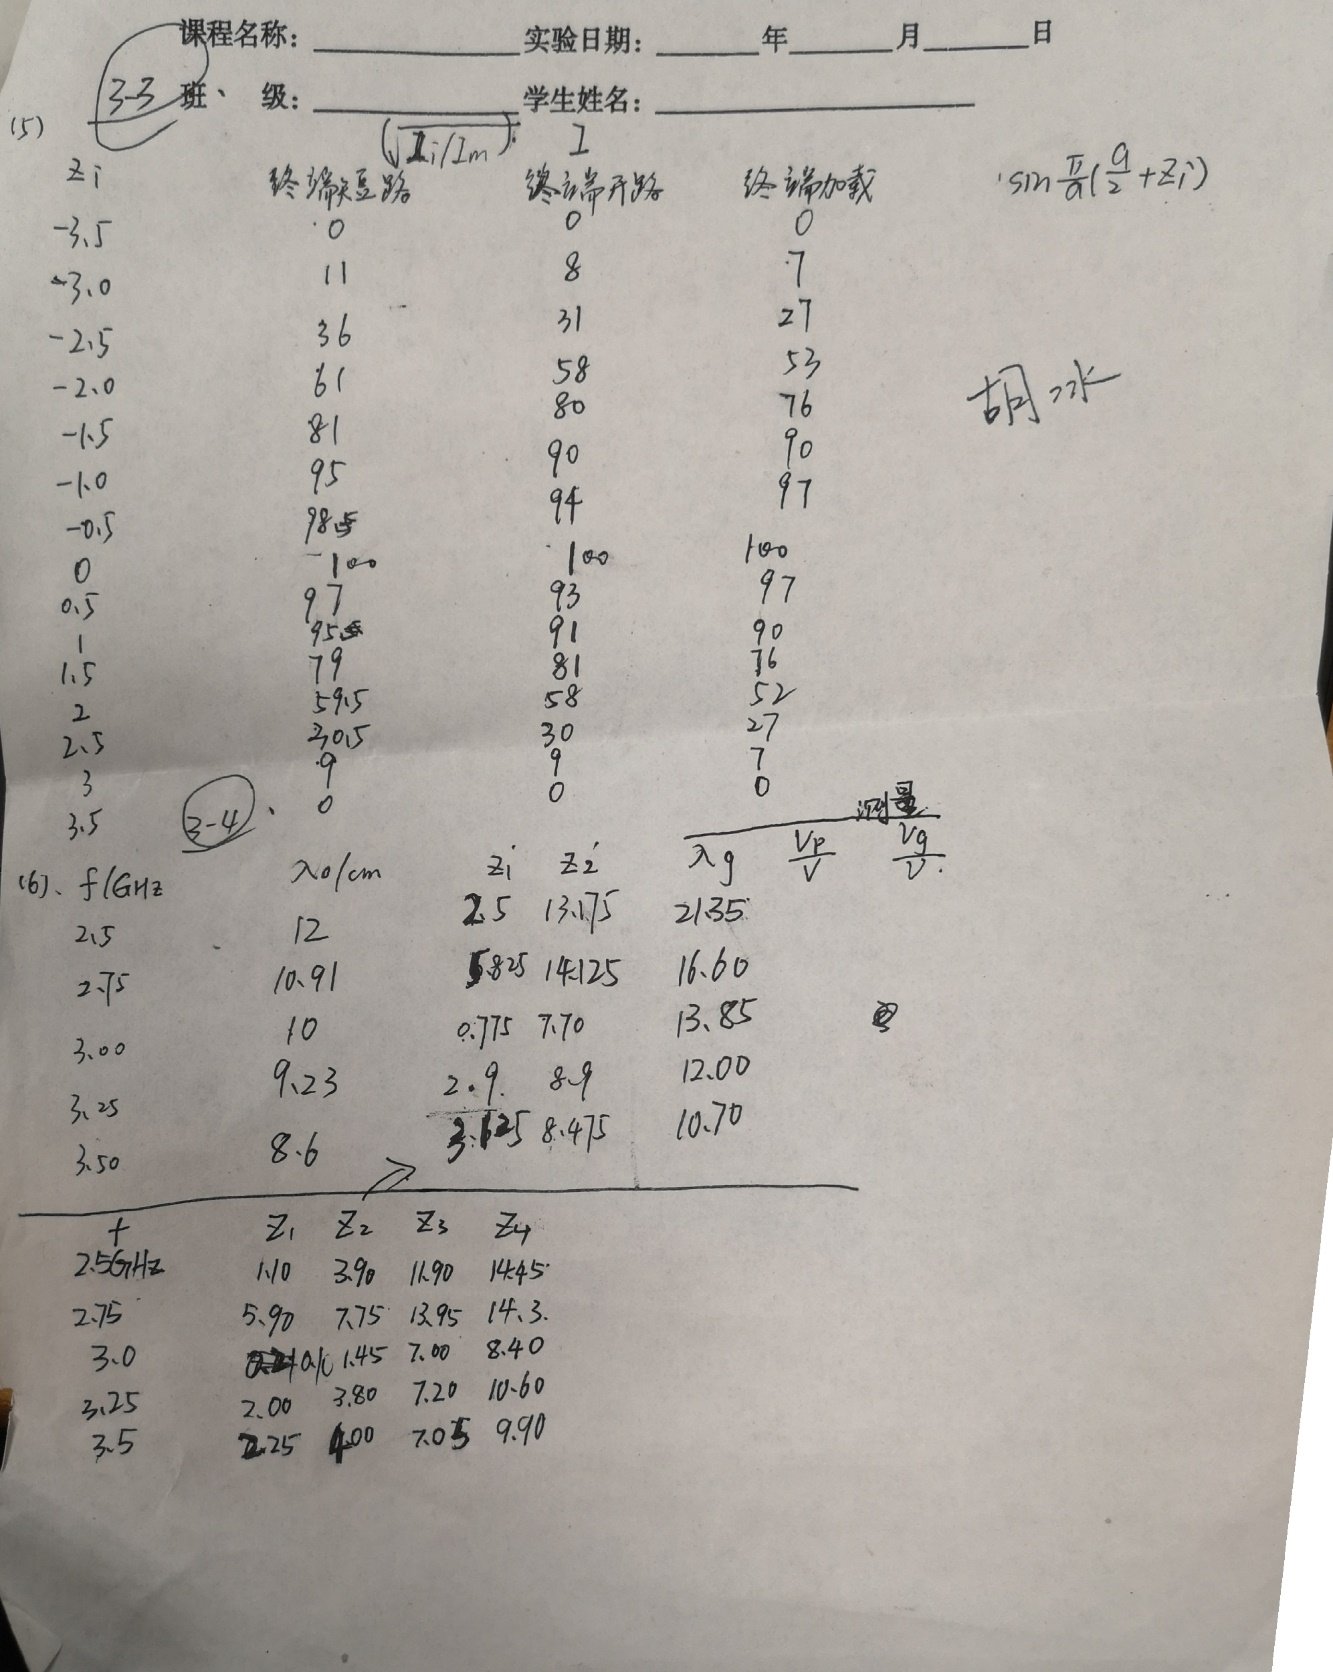 课程名称: 实验日期: 年 月 日
3-3 班、 级: 学生姓名:
(5) (√Ii/Im) I
Zi 终端短路 终端开路 终端加载 sin π/a(a/2+Zi)
-3.5 0 0 0
-3.0 11 8 7
-2.5 36 31 27
-2.0 61 58 53
-1.5 81 80 76
-1.0 95 90 90
-0.5 98.5 94 97
0 100 100 100
0.5 97 93 97
1 95 91 90
1.5 79 81 76
2 59.5 58 52
2.5 30.5 30 27
3 9 9 7
3.5 0 0 0
胡冰
3-4 测量
(6)、f(GHz λ0/cm Z1' Z2' λg Vp/V Vg/V
2.5 12 2.5 13.175 21.35
2.75 10.91 5.825 14.125 16.60
3.00 10 0.775 7.70 13.85
3.25 9.23 2.9 8.9 12.00
3.50 8.6 3.125 8.475 10.70
f Z1 Z2 Z3 Z4
2.5GHz 1.10 3.90 11.90 14.45
2.75 5.90 7.75 13.95 14.3
3.0 1.45 7.00 8.40
3.25 2.00 3.80 7.20 10.60
3.5 2.25 4.00 7.05 9.90